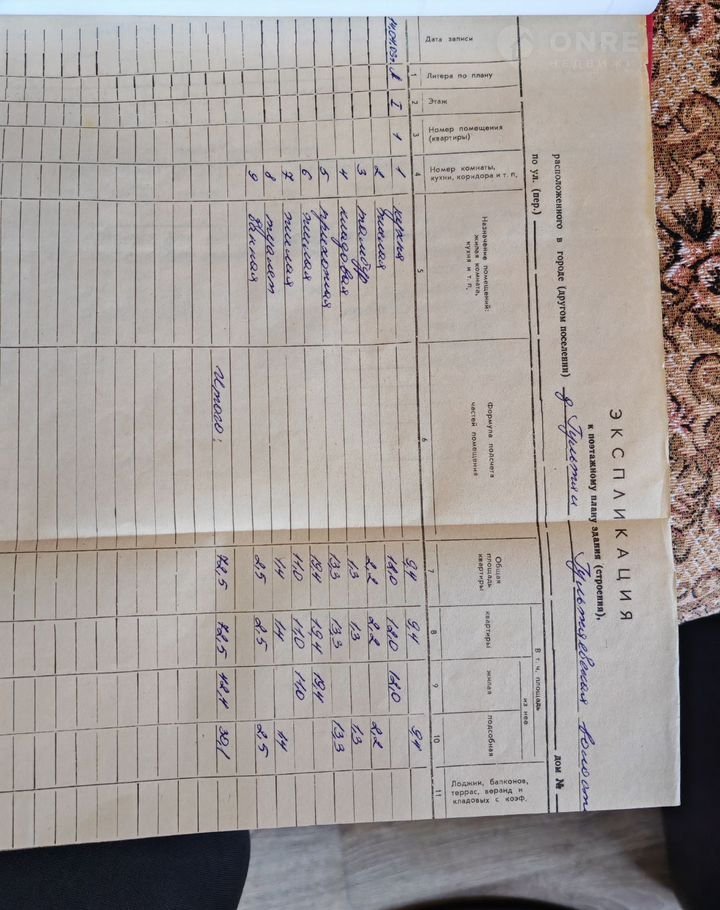 ONRE
НЕДВИЖ
ЭКСПЛИКАЦИЯ
к поэтажному плану здания (строения),
расположенного в городе (другом поселении) д. Гультяи Гультяевская волост
по ул. (пер.) дом №
Дата записи
Литера по плану
Этаж
Номер помещения (квартиры)
Номер комнаты, кухни, коридора и т. п.
Назначение помещений: жилая комната, кухня и т. п.
Формула подсчета частей помещения
Общая площадь квартиры
В т. ч. площадь
квартиры
из нее
жилая
подсобная
Лоджии, балконов, террас, веранд и кладовых с коэф.
1 2 3 4 5 6 7 8 9 10 11
14.04.03г. А I 1 1 кухня 9,4 9,4 9,4
2 жилая 12,0 12,0 12,0
3 тамбур 2,2 2,2 2,2
4 кладовая 1,3 1,3 1,3
5 прихожая 13,3 13,3 13,3
6 жилая 19,4 19,4 19,4
7 жилая 11,0 11,0 11,0
8 туалет 1,4 1,4 1,4
9 ванная 2,5 2,5 2,5
Итого: 72,5 72,5 42,4 30,1